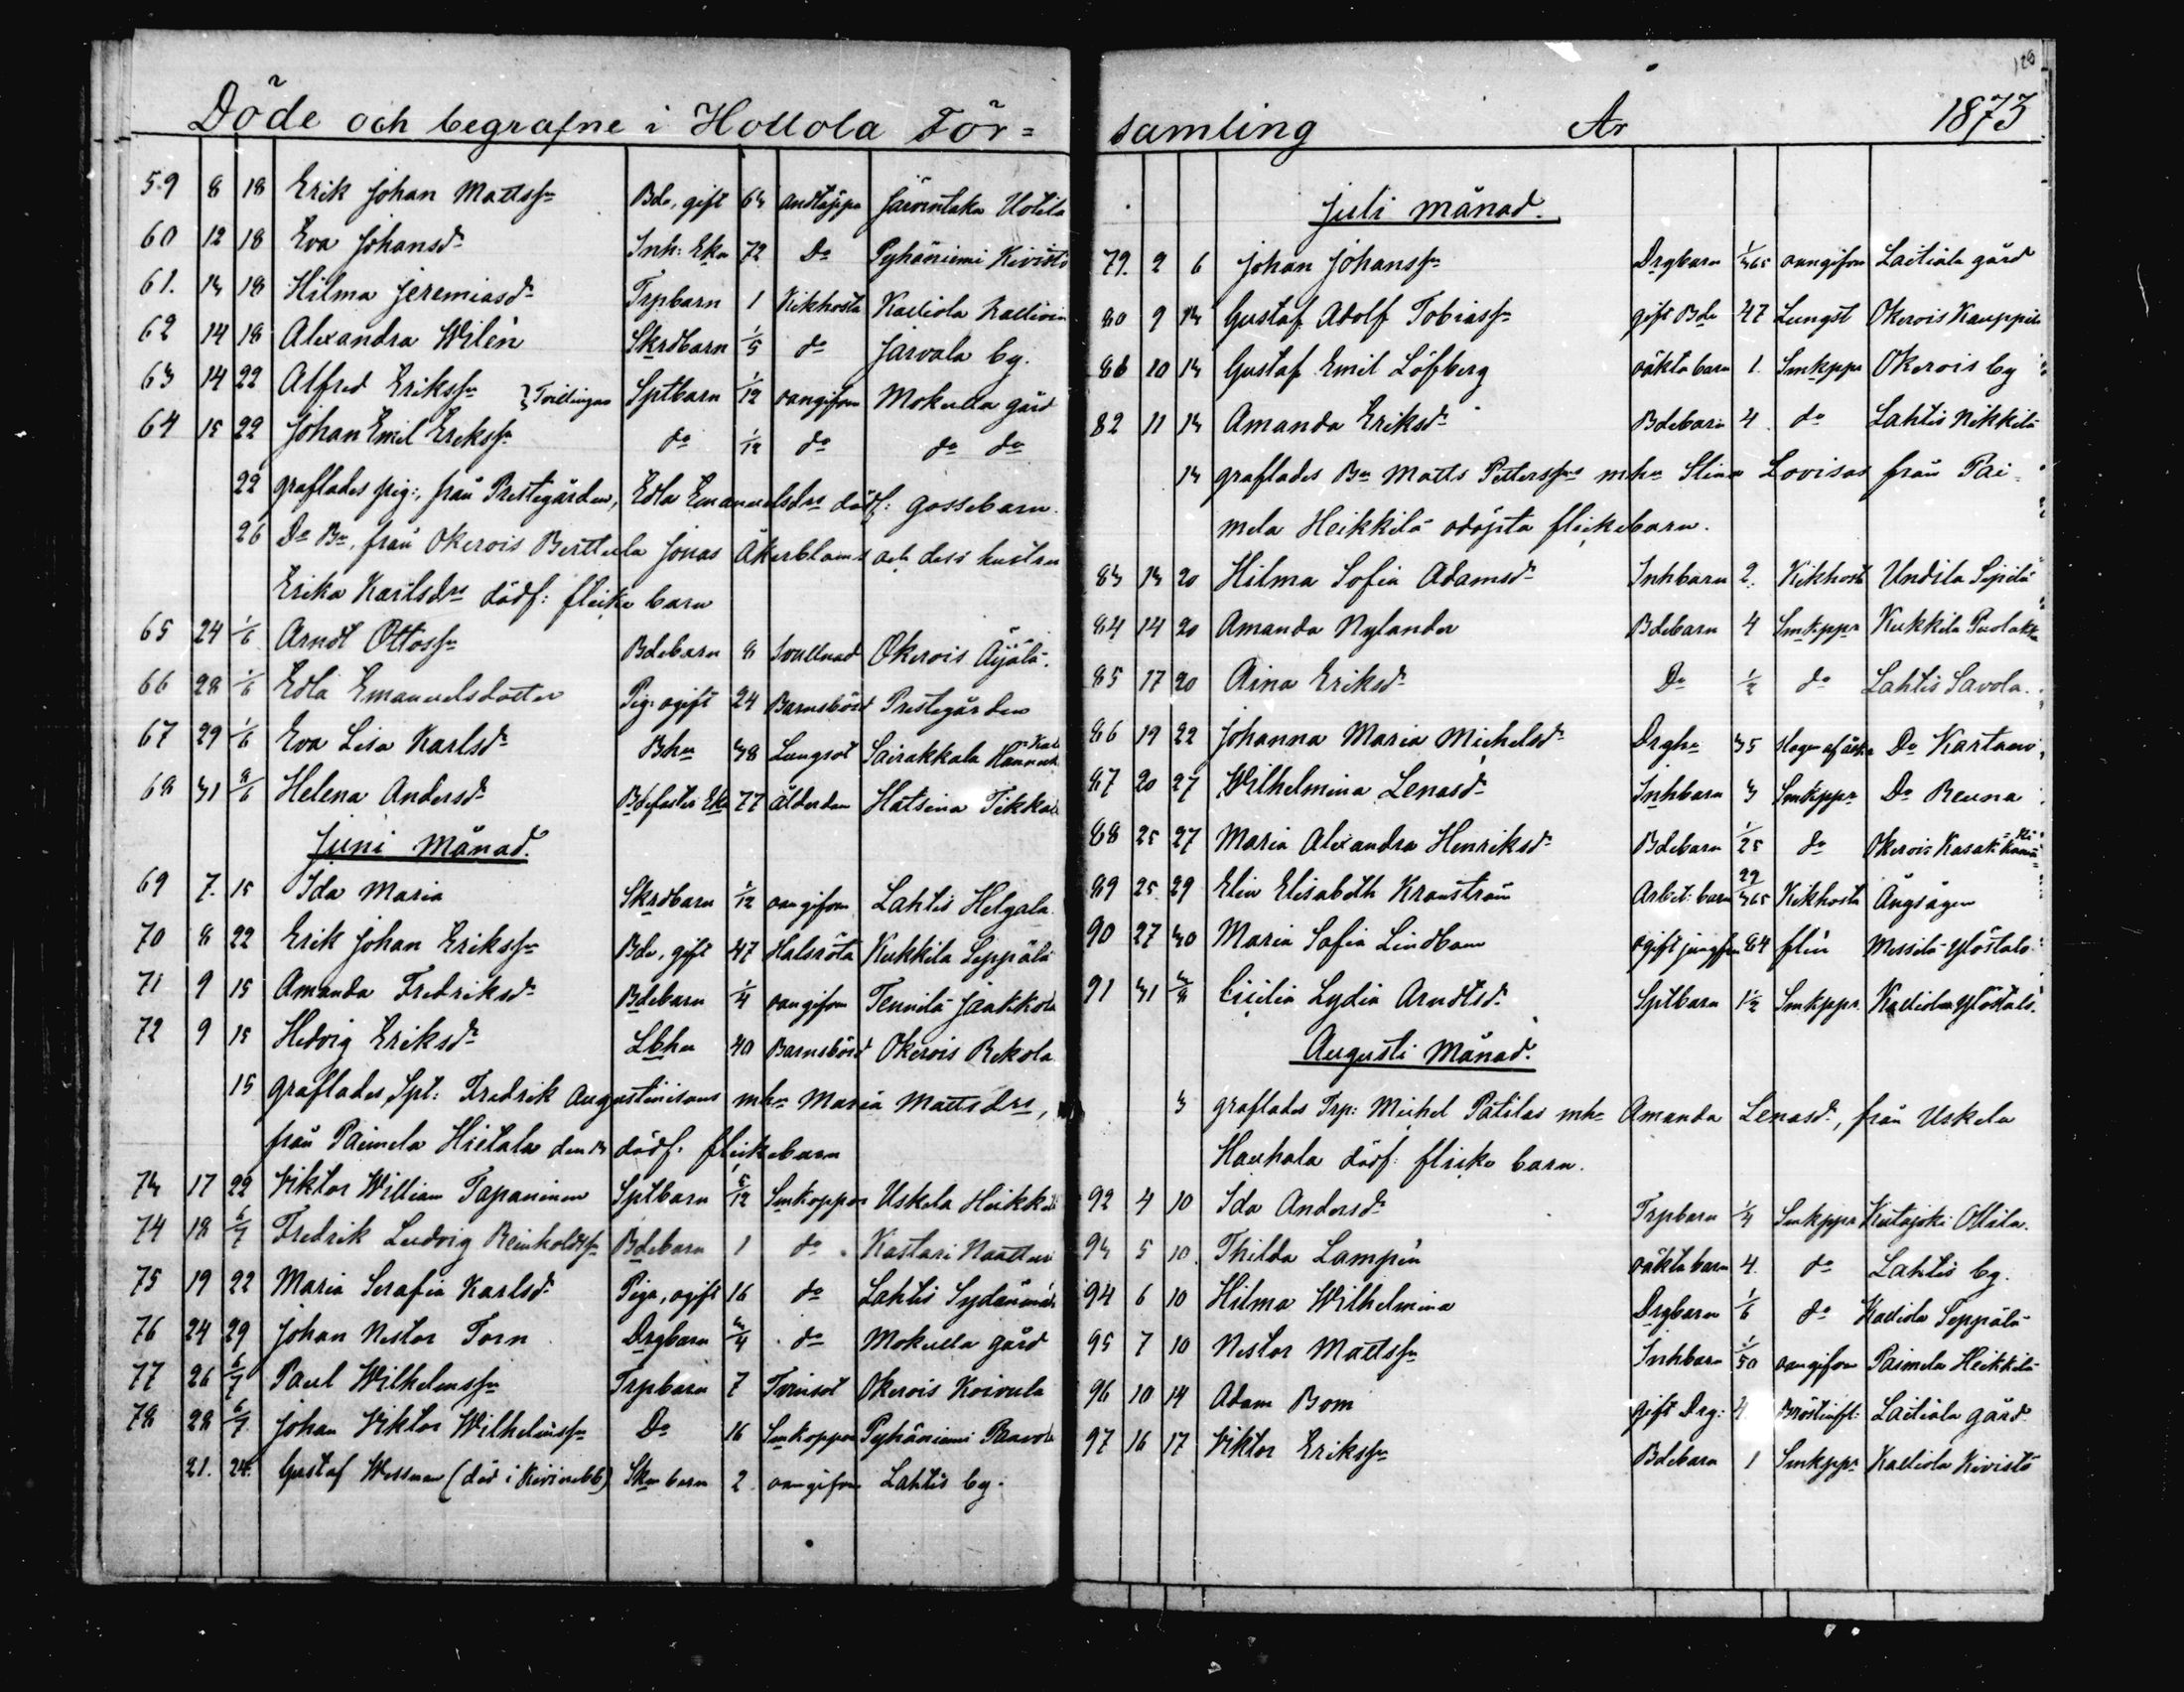 Döde och begrafne i Hollola För=
59 8 18 Erik Johan Mattss:n Bde, gift 63 andtäppa Järventaka Uotila
60 12 18 Eva Johansd:r Inh: Eka 72 D:o Pyhäniemi Kivistö
61. 13 18 Hilma Jeremiasd:r Trpbarn 1 Kikhosta Kalliola
62 14 18 Alexandra Wilén Skrdbarn 1/5 d:o Järvala by.
63 14 22 Alfred Erikss:n } Tvillingar Sptbarn 1/12 oangifven Mokulla gård
64 15 22 Johan Emil Erikss:n d:o 1/12 d:o d:o d:o
22 graflades pig:, från Prestegården, Edla Emanuelsdrs dödf: gossebarn.
26 D:o B:n, från Okerois Berttula Jonas Åkerbloms och dess hustru
Erika Karlsdrs dödf: flicke barn
65 24 1/6 Arndt Ottoss:n Bdebarn 8 Svullnad Okerois Äijälä.
66 28 1/6 Edla Emanuelsdotter Pig: ogift 24 Barnsbörd Prestegården
67 29 1/6 Eva Lisa Karlsd:r Bh:u 38 Lungsot Sairakkala
68 31 8/6 Helena Andersd:r Bdefaster Eka 77 Ålderdom Hatsina
Juni Månad.
69 7. 15 Ida Maria Skrdbarn 1/12 oangifven Lahtis Helgala
70 8 22 Erik Johan Erikss:n Bde, gift 47 Halsröta Kukkila Seppälä
71 9 15 Amanda Fredriksd:r Bdebarn 1/4 oangifven Tennilä Jaakkola
72 9 15 Hedvig Eriksd:r Lbh:u 40 Barnsbörd Okerois Rekola
15 graflades, Spt: Fredrik Augustinisons mh:s Maria Mattsdrs,
från Paimela Hietala den dödf. flickebarn
73 17 22 Viktor William Tapaninen Sptbarn 5/12 Smkoppor Uskela Heikkilä
74 18 6/7 Fredrik Ludvig Reinholdss:n Bdebarn 1 d:o Kastari
75 19 22 Maria Serafia Karlsd:r Piga, ogift 16 d:o Lahtis
76 24 29 Johan Nestor Torn Drgbarn 3/4 d:o Mokulla gård
77 26 6/7 Paul Wilhelmss:n Trpbarn 7 Tvinsot Okerois Koivula
78 28 6/7 Johan Viktor Wilhelmss:n D:o 16 Smkoppor Pyhäniemi Paavola
21. 24. Gustaf Wessman (död i Kivinebb) barn 2 oangifven Lahtis by.
samling År 1873
Juli månad.
79. 2 6 Johan Johanss:n Drgbarn 1/365 oangifven Laitiala gård
80 9 13 Gustaf Adolf Tobiass:n gift Bde 47 Lungst Okerois Kauppila
81 10 13 Gustaf Emil Löfberg oäkta barn 1. Smkppr Okerois by
82 11 13 Amanda Eriksd:r Bdebarn 4 d:o Lahtis Nikkilä
13 graflades B:n Matts Petterss:ns mh:u Stina Lovisas från Pai-
mela Heikkilä odöpta flickebarn.
83 13 20 Hilma Sofia Adamsd:r Inhbarn 2. Kikhost Undila Sipilä
84 14 20 Amanda Nylander Bdebarn 4 Smkppr Kukkila
85 17 20 Aina Eriksd:r D:o 1/2 d:o Lahtis Savola.
86 19 22 Johanna Maria Michelsd:r Drgh:u 35 Slagen af åska D:o Kartano
87 20 27 Wilhelmina Lenasd:r Inhbarn 3 Smkppr D:o Reuna
88 25 27 Maria Alexandra Henriksd:r Bdebarn 1/25 d:o Okerois Kasak
89 25 29 Elin Elisabeth Kranström Arbet: barn 29/365 Kikhosta Ångsågen
90 27 30 Maria Sofia Lindbom ogift jungfru 84 flén Messilä Ylöstalo.
91 31 3/8 Cicilia Lydia Arndtsd:r Sptbarn 1 1/2 Smkppr. Kalliola Ylöstalo.
Augusti Månad.
3 graflades Trp: Michel Patilas mh:u Amanda Lenasd:r, från Uskela
Hauhala dödf: flicke barn.
92 4 10 Ida Andersd:r Trpbarn 1/4 Smkppr Kutajoki Ollila.
93 5 10. Thilda Lampén oäkta barn 4. d:o Lahtis by.
94 6 10 Hilma Wilhelmina Drgbarn 1/6 d:o Kalliola Seppälä
95 7 10 Nestor Mattss:n Inhbarn 1/50 oangifven Paimela Heikkilä
96 10 14 Adam Bom gift Drg: Bröstinfl: Laitiala gård
97 16 17 Viktor Erikss:n Bdebarn 1 Smkppr Kalliola Kivistö